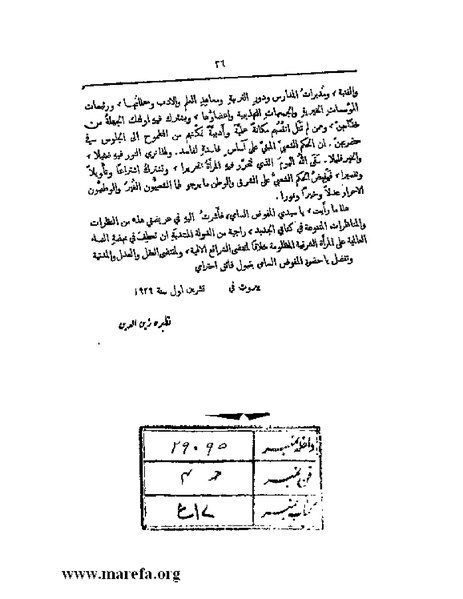 ٢٦
والفتية ، ومديرات المدارس ودور التربية ومعاهد العلم والأدب ومعلماتها ، ورئيسات
المؤسسات الخيرية والجمعيات التهذيبية واعضاؤها ، ويشترك فيه اولئك الجهلة من
خدّامهن ، ومن لم تنل انفسهم مكانة علمية وأدبية تمكنهم من الطموح الى الجلوس في
حضرتهن . ان الحكم الشعبي المبني على أساس فاسد فاسد . ولقد نرى النور فيه ضئيلا ،
والخير قليلا . سقى الله اليوم الذي تحرر فيه المرأة تحريرا ، وتشترك اشتراعا وتأويلاً
وتفسيرا ، فيفيض الحكم الشعبي على الشرق والوطن ما يرجو لهما الشعبيون الغُيُر والوطنيون
الاحرار عدلاً وخيراً ونورا .
هذا ما رأيت ، يا سيدي المفوض السامي ، فأشرت اليه في عريضتي هذه من النظرات
والمناظرات المتنوعة في كتابي الجديد ، راجية من الدولة المنتدبة ان تعطف في نهضة النساء
العالمية على المرأة الشرقية المظلومة خلافاً لمقتضى الشرائع الالهية ، ولمقتضى العقل والعدل والمدنية
وتفضل يا حضرة المفوض السامي بقبول فائق احترامي
بيروت في تشرين اول سنة ١٩٢٩
نظيره زين الدين
داخله نمبر ٢٩٠٩٥
فن نمبر
كتاب نمبر
www.marefa.org